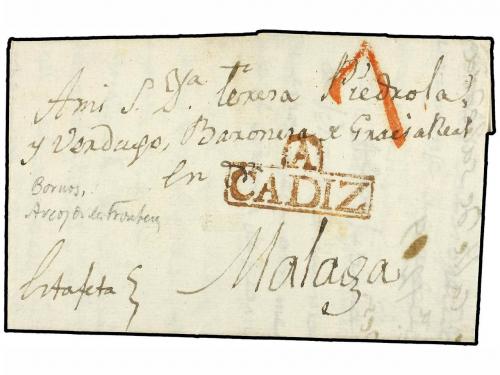 7
A mi S.ra D.a Teresa Piedrola,
y Verdugo, Baronesa de Gracia Real
en
A
CADIZ
Bornos,
Arcos de la Frontera
Estafeta
Malaga